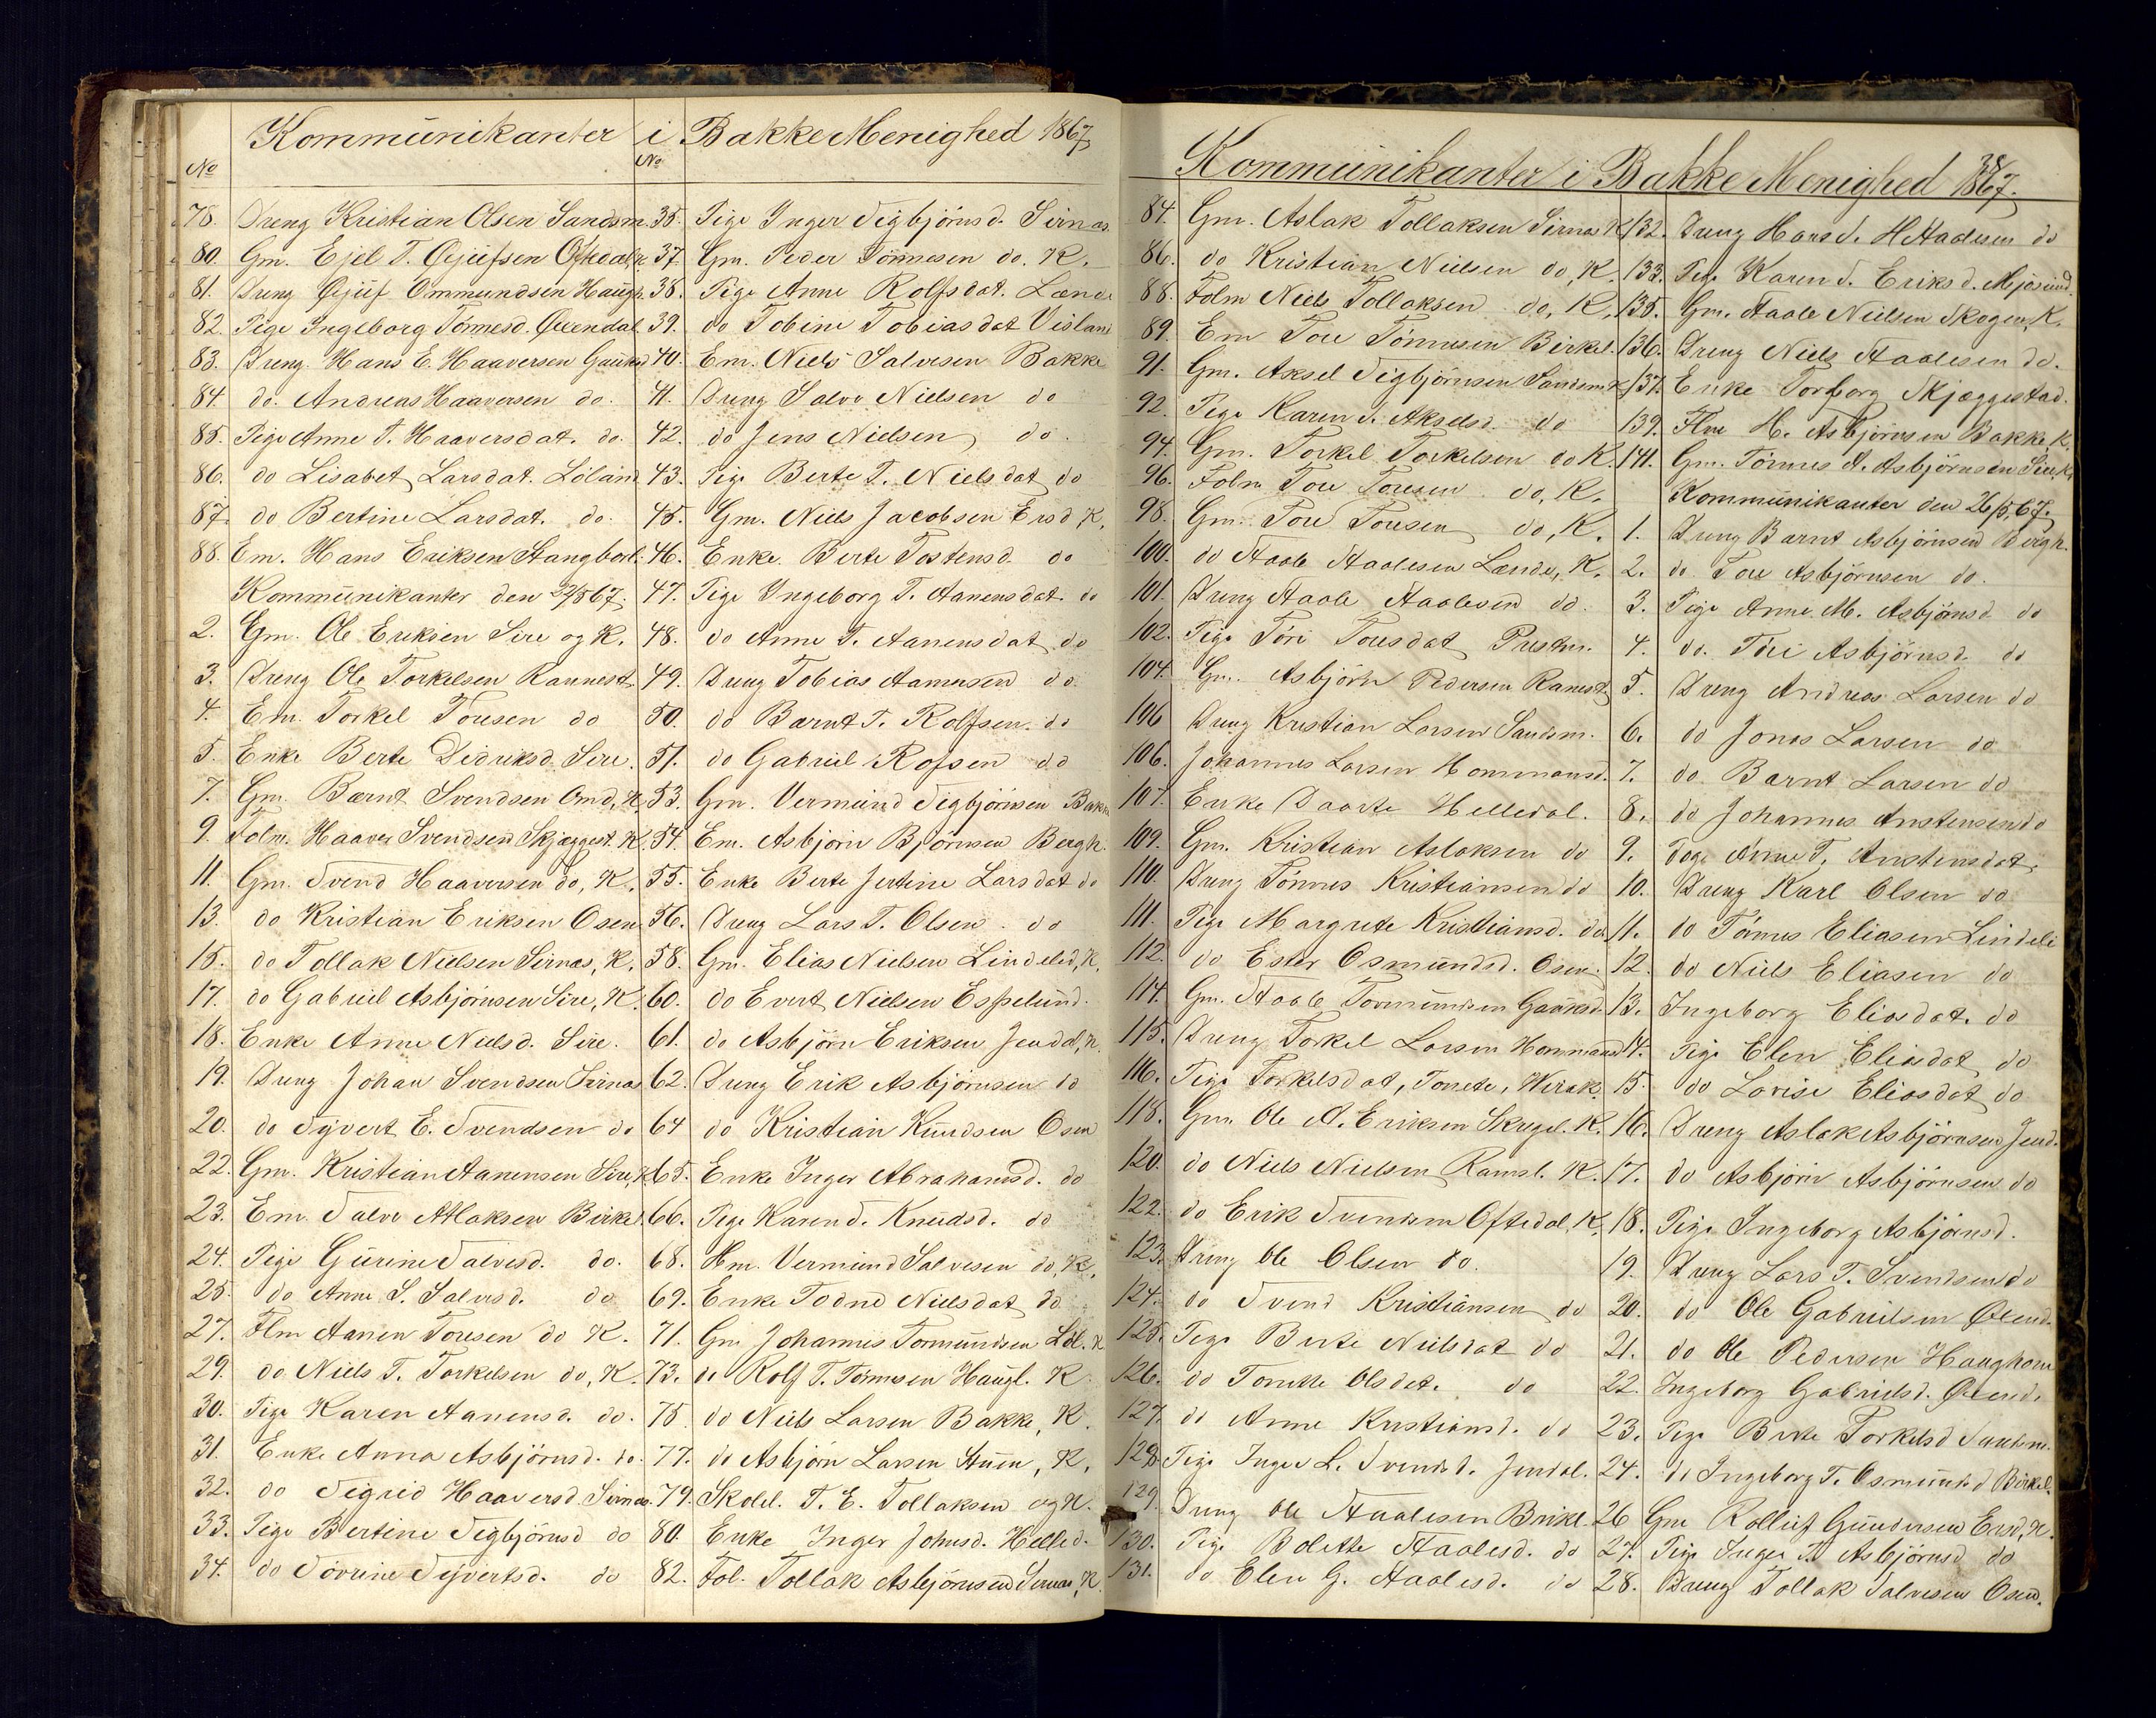 Kommunikanter i Bakke Menighed 1867
No
78. Dreng Kristian Olsen Sandsm.
80. Gm. Ejel T. Øjufsen Oftedal, K.
81. Dreng Øjuf Ommundsen Haugh.
82. Pige Ingeborg Tönnesd. Øvendal
83. Dreng Hans E. Haaversen
84. do. Andreas Haaversen do.
85. Pige Anne T. Haaversdat. do.
86. do Lisabet Larsdat. Löland
87. do Bertine Larsdat. do.
88. Em. Hans Eriksen Stangbor.
Kommunikanter den 22/5 67.
2. Gm. Ole Eriksen Sire og K.
3. Dreng Ole Torkelsen Rannest.
4. Em. Torkel Toresen do
5. Enke Berte Didriksd. Sire.
7. Gm. Bærnt Svendsen Omd, K.
9. Folm. Haaver Svendsen Skjæggest. K.
11. Gm. Svend Haaversen do, K.
13. do Kristian Eriksen Osen
15. do Tollak Nielsen Sirnæs, K.
17. do Gabriel Asbjörnsen Sire, K.
18. Enke Anne Nielsd. Sire.
19. Dreng Johan Svendsen Sirnæs
20. do Syvert E. Svendsen do
22. Gm. Kristian Aanensen Sire, K.
23. Em. Salve Atlaksen Birkel.
24. Pige Gurine Salvesd. do.
25. do Anne S. Salvesd. do
27. Flm Aanen Toresen do K.
29. do Niels T. Torkelsen do, K.
30. Pige Karen Aanensd. do.
31. Enke Anna Asbjörnsd. do.
32. do Sigrid Haaversd. Sirnæs.
33. Pige Bertine Sigbjörnsd do
34. do Sörine Syvertsd. do
No
35. Pige Inger Sigbjörnsd. Sirnæs.
37. Gm. Peder Tönnesen do. K.
38. Pige Anne Rolfsdat. Lænde
39. do Tobine Tobiasdat Visland
40. Em. Niels Salvesen Bakke
41. Dreng Salve Nielsen do
42. do Jens Nielsen do.
43. Pige Berte T. Nielsdat do
45. Gm. Niels Jacobsen Ersd K.
46. Enke Berte Tostensd. do
47. Pige Ingeborg T. Aanensdat. do
48. do Anne T. Aanensdat do
49. Dreng Tobias Aanensen do.
50. do Bærnt T. Rolfsen. do
51. do Gabriel Rofsen do
53. Gm. Vermund Sigbjörnsen Bakke
54. Em. Asbjörn Björnsen Bergh.
55. Enke Berte Jertine Larsdat do
56. Dreng Lars T. Olsen do
58. Gm. Elias Nielsen Lindeled, K.
60. do Evert Nielsen Espelund.
61. do Asbjörn Eriksen Jendal, K.
62. Dreng Erik Asbjörnsen do
64 do Kristian Knudsen Osen
65. Enke Inger Abrahamsd. do
66. Pige Karen S. Knudsd. do
68. Hm. Vermund Salvesen do, K.
69. Enke Todne Nielsdat do
71. Gm Johannes Tormundsen Löl. K
73. do Rolf T. Tönnesen Haugl. K
75. do Niels Larsen Bakke, K.
77. do Asbjörn Larsen Stuen, K.
79. Skolel. T. E. Tollaksen og K.
80. Enke Inger Johnsd. Helled.
82. Fol. Tollak Asbjörnsen Sirnæs, K.
38
Kommunikanter i Bakke Menighed 1867.
84. Gm. Aslak Tollaksen Sirnæs K
86. do Kristian Nielsen do, K.
88. Folm Niels Tollaksen do, K.
89. Em Tore Tönnesen Birkel.
91. Gm. Aksel Sigbjörnsen Sandsm. K
92. Pige Karen S. Akselsd. do
94. Gm. Torkel Torkelsen do K.
96. Folm Tore Toresen do, K.
98. Gm. Tore Toresen do, K.
100. do Staale Staalesen Lænde, K.
101. Dreng Staale Staalesen do.
102. Pige Töri Toresdat Prestm.
104. Gm. Asbjörn Pedersen Ranest
106 Dreng Kristian Larsen Sandsm.
106. Johannes Larsen Hommansd.
107. Enke Daarte Helledal.
109. Gm. Kristian Aslaksen do
110. Dreng Tönnes Kristiansen do
111. Pige Margrete Kristiansd. do
112. do Ester Osmundsd. Osen.
114. Gm. Staale Tormundsen
115. Dreng Torkel Larsen Hommansd
116. Pige Torkelsdat, Tonete, Wirak.
118. Gm. Ole A. Eriksen Skregel. K.
120. do Niels Nielsen Ramsl. K.
122. do Erik Svendsen Oftedal. K.
123. Dreng Ole Olsen do.
124. do Svend Kristiansen do
125. Pige Berte Nielsdat do
126. do Tonette Olsdat. do
127. do Anne Kristiansd. do
128. Pige Inger L. Svendsd. Jendal.
129. Dreng Ole Staalesen Birkel.
130. Pige Bolette Staalesd. do
131. do Elen G. Staalesd. do
132. Dreng Hans S. Staalesen do
133. Pige Karen S. Eriksd. Mjösund
135. Gm. Staale Nielsen Skogen, K.
136. Dreng Niels Staalesen do.
137. Enke Torborg Skjæggestad.
139. Flm H. Asbjörnsen Bakke, K.
141. Gm. Tönnes A. Asbjörnsen Sire, K.
Kommunikanter den 26/5, 67.
1. Dreng Bærnt Asbjörnsen Bergh.
2. do Tore Asbjörnsen do.
3. Pige Anne M. Asbjörnsd. do
4. do. Töri Asbjörnsd. do
5. Dreng Andreas Larsen do
6. do Jonas Larsen do
7. do Bærnt Larsen do
8. do Johannes Anstensen do
9. Pige Anne T. Anstensdat.
10. Dreng Karl Olsen do
11. do Tönnes Eliasen Lindeli
12. do Niels Eliasen do
13. Ingeborg Eliasdat. do
14. Pige Elen Eliasdat do
15. do Lovise Eliasdat do
16. Dreng Aslak Asbjörnsen Jend.
17. do Asbjörn Asbjörnsen do
18. Pige Ingeborg Asbjörnsd.
19. Dreng Lars T. Svendsen do
20. do Ole Gabrielsen Øvend.
21. do Ole Pedersen Haughom
22. Ingeborg Gabrielsd. Øvend.
23. Pige Berte Torkelsd Sandsm.
24. do Ingeborg T. Osmundsd Birkel.
26 Gm Rollief Gundersen Ersd, K.
27. Pige Inger T. Asbjörnsd do
28. Dreng Tollak Salvesen Osen.